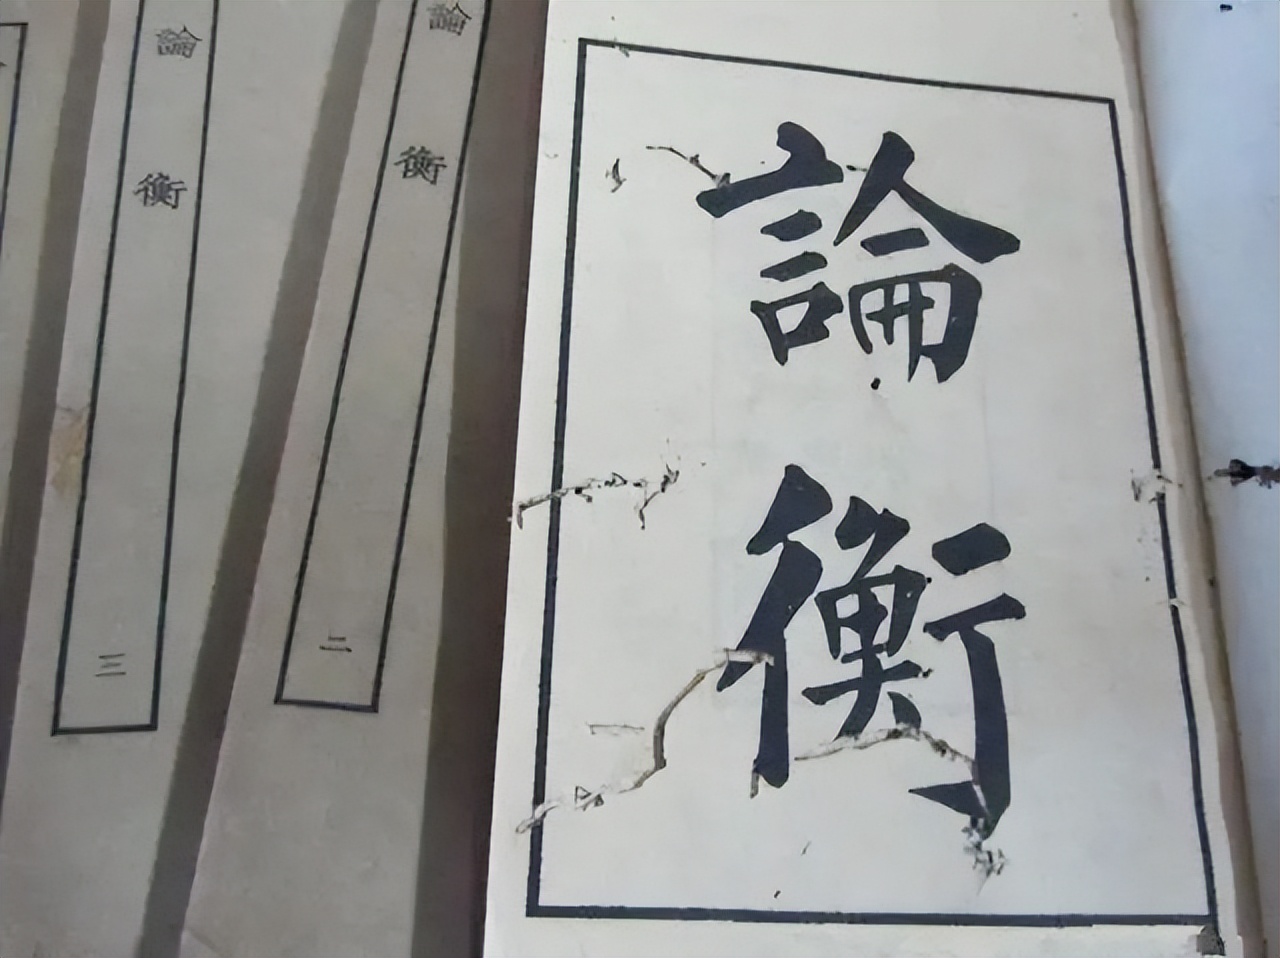 論衡
論衡 二
論衡 三